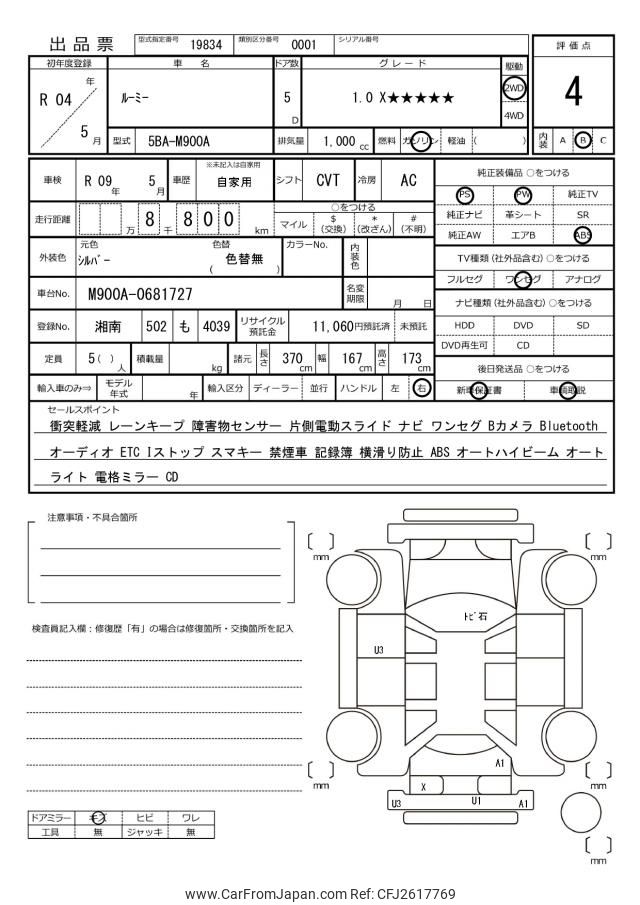 出品票 型式指定番号 19834 類別区分番号 0001 シリアル番号
評価点
4
内装 A B C
初年度登録 車名 ドア数 グレード 駆動
R 04 年 5 月 ルーミー 5 D 1.0 X★★★★★ 2WD 4WD
型式 5BA-M900A 排気量 1,000 cc 燃料 ガソリン 軽油 ( )
車検 R 09 年 5 月 車歴 ※未記入は自家用 自家用 シフト CVT 冷房 AC
走行距離 万 8 千 8 0 0 km
○をつける
マイル $ (交換) * (改ざん) # (不明)
外装色 元色 シルバー 色替 ( 色替無 ) カラーNo. 内装色
車台No. M900A-0681727 名変期限 月 日
登録No. 湘南 502 も 4039 リサイクル預託金 11,060円預託済 未預託
定員 5( )人 積載量 kg 諸元 長さ 370 cm 幅 167 cm 高さ 173 cm
輸入車のみ⇒ モデル年式 年 輸入区分 ディーラー 並行 ハンドル 左 右
純正装備品 ○をつける
PS PW 純正TV
純正ナビ 革シート SR
純正AW エアB ABS
TV種類 (社外品含む) ○をつける
フルセグ ワンセグ アナログ
ナビ種類 (社外品含む) ○をつける
HDD DVD SD
DVD再生可 CD
後日発送品 ○をつける
新車保証書 車輌取説
セールスポイント
衝突軽減 レーンキープ 障害物センサー 片側電動スライド ナビ ワンセグ Bカメラ Bluetooth
オーディオ ETC Iストップ スマキー 禁煙車 記録簿 横滑り防止 ABS オートハイビーム オート
ライト 電格ミラー CD
注意事項・不具合箇所
検査員記入欄:修復歴「有」の場合は修復箇所・交換箇所を記入
ドアミラー キズ ヒビ ワレ
工具 無 ジャッキ 無
mm mm
トビ石
U3
A1
mm mm
X
U3 U1 A1
mm
www.CarFromJapan.com Ref: CFJ2617769